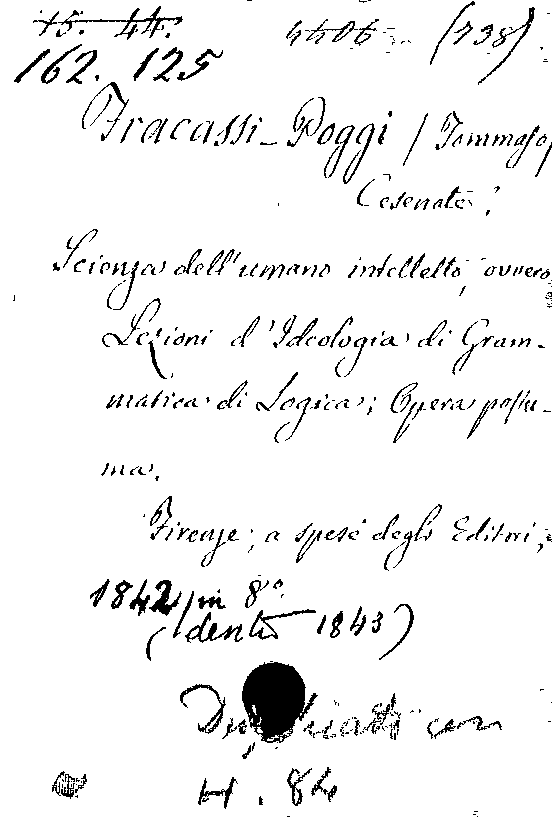 15. 44. 4406 (738)
162. 125
Fracassi-Poggi / Tommaso,
Cesenate.
Scienza dell'umano intelletto, ovvero
Lezioni d'Ideologia di Gram-
matica di Logica; Opera postu-
ma.
Firenze, a spese degli Editori,
1842 in 8º
(dentro 1843)
Duplicato con
H. 84